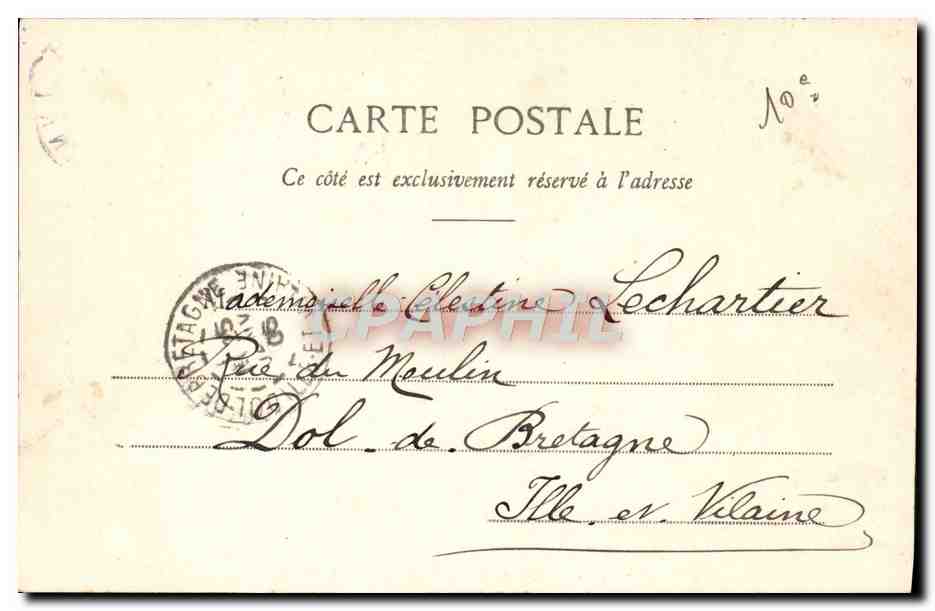 CARTE POSTALE
10e
Ce côté est exclusivement réservé à l'adresse
Mademoiselle Célestine Lechartier
CPAPHIL
Rue du Moulin
Dol-de-Bretagne
Ille-et-Vilaine
DOL-DE-BRETAGNE